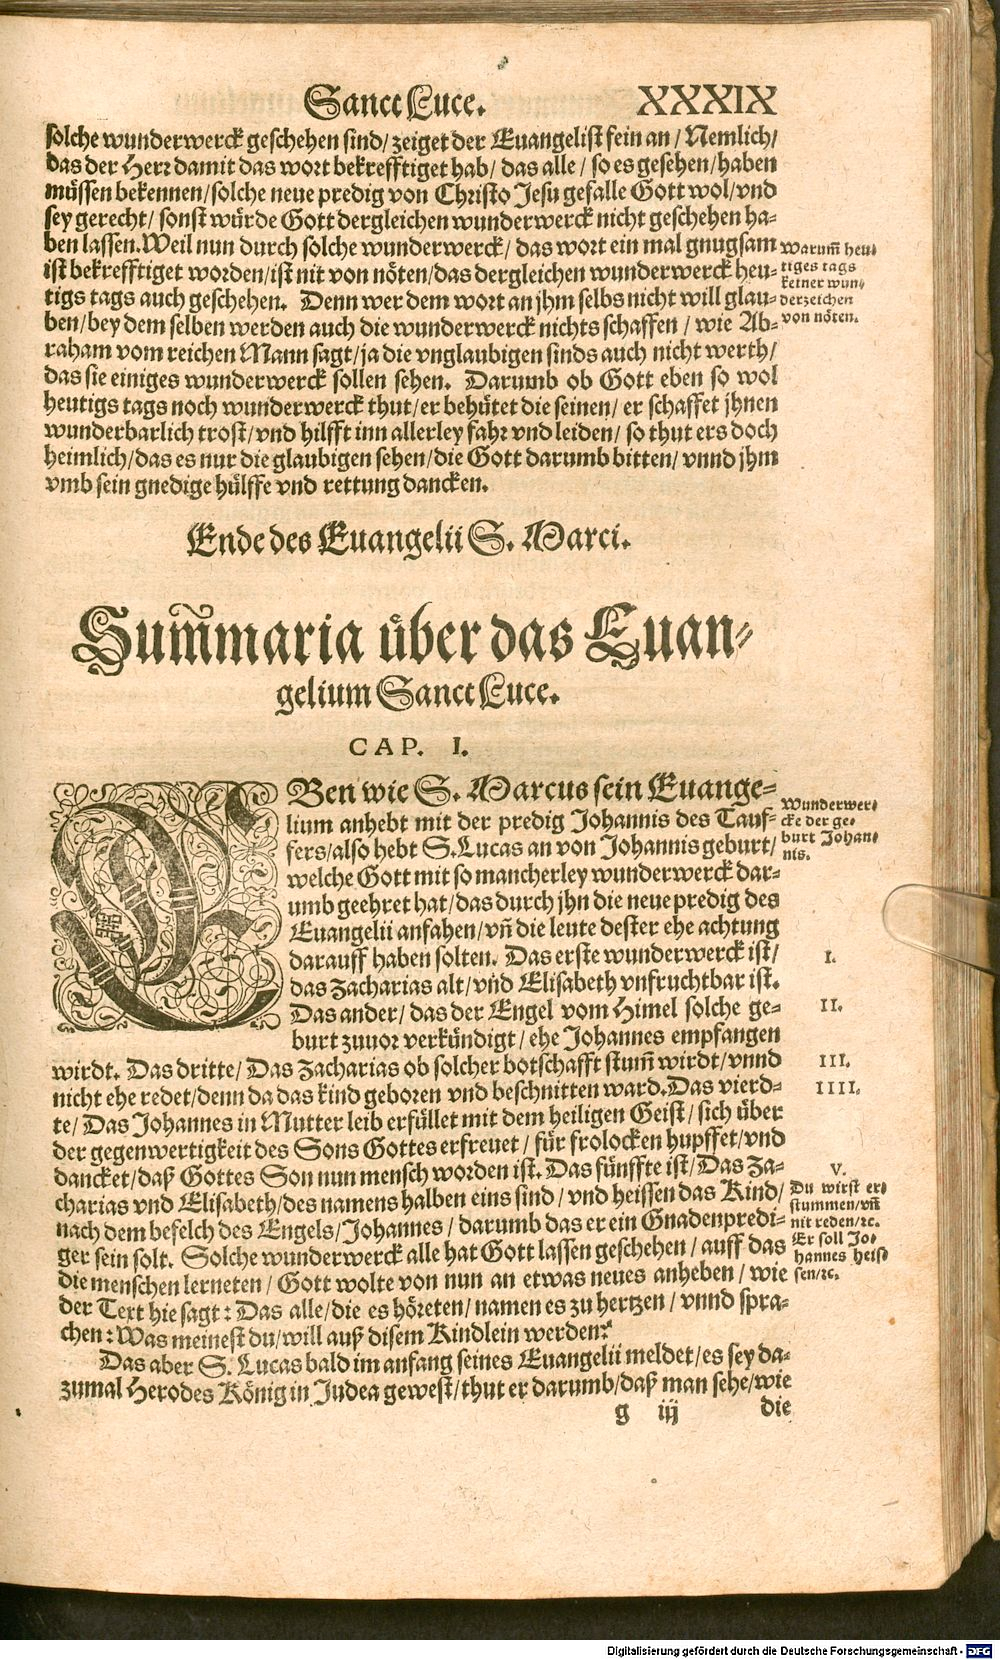 Sanct Luce. XXXIX
solche wunderwerck geschehen sind/ zeiget der Euangelist fein an/ Nemlich/
das der Herr damit das wort bekrefftiget hab/ das alle/ so es gesehen/ haben
müssen bekennen/ solche neue predig von Christo Jesu gefalle Gott wol/ vnd
sey gerecht/ sonst würde Gott dergleichen wunderwerck nicht geschehen ha-
ben lassen. Weil nun durch solche wunderwerck/ das wort ein mal gnugsam
ist bekrefftiget worden/ ist nit von nöten/ das dergleichen wunderwerck heu-
tigs tags auch geschehen. Denn wer dem wort an jhm selbs nicht will glau-
ben/ bey dem selben werden auch die wunderwerck nichts schaffen/ wie Ab-
raham vom reichen Mann sagt/ ja die vnglaubigen sinds auch nicht werth/
das sie einiges wunderwerck sollen sehen. Darumb ob Gott eben so wol
heutigs tags noch wunderwerck thut/ er behütet die seinen/ er schaffet jhnen
wunderbarlich trost/ vnd hilfft inn allerley fahr vnd leiden/ so thut ers doch
heimlich/ das es nur die glaubigen sehen/ die Gott darumb bitten/ vnnd jhm
vmb sein gnedige hülffe vnd rettung dancken.
Warum̃ heu-
tiges tags
keiner wun-
derzeichen
von nöten.
Ende des Euangelii S. Marci.
Sum̃maria über das Euan-
gelium Sanct Luce.
CAP. I.
EBen wie S. Marcus sein Euange-
lium anhebt mit der predig Johannis des Tauf-
fers/ also hebt S. Lucas an von Johannis geburt/
welche Gott mit so mancherley wunderwerck dar-
umb geehret hat/ das durch jhn die neue predig des
Euangelii anfahen/ vñ die leute dester ehe achtung
darauff haben solten. Das erste wunderwerck ist/
das Zacharias alt/ vñd Elisabeth vnfruchtbar ist.
Das ander/ das der Engel vom Himel solche ge-
burt zuuor verkündigt/ ehe Johannes empfangen
wirdt. Das dritte/ Das Zacharias ob solcher botschafft stum̃ wirdt/ vnnd
nicht ehe redet/ denn da das kind geboren vnd beschnitten ward. Das vierd-
te/ Das Johannes in Mutter leib erfüllet mit dem heiligen Geist/ sich über
der gegenwertigkeit des Sons Gottes erfreuet/ für frolocken hupffet/ vnd
dancket/ daß Gottes Son nun mensch worden ist. Das fünffte ist/ Das Za-
charias vnd Elisabeth/ des namens halben eins sind/ vnd heissen das Kind/
nach dem befelch des Engels/ Johannes/ darumb das er ein Gnadenpredi-
ger sein solt. Solche wunderwerck alle hat Gott lassen geschehen/ auff das
die menschen lerneten/ Gott wolte von nun an etwas neues anheben/ wie
der Text hie sagt: Das alle/ die es höreten/ namen es zu hertzen/ vnnd spra-
chen: Was meinest du/ will auß disem Kindlein werden?
Das aber S. Lucas bald im anfang seines Euangelii meldet/ es sey da-
zumal Herodes König in Judea gewest/ thut er darumb/ daß man sehe/ wie
Wunderwer-
cke der ge-
burt Johan-
nis.
I.
II.
III.
IIII.
V.
Du wirst er-
stummen/ vñ
nit reden/ ꝛc.
Er soll Jo-
hannes heis-
sen/ ꝛc.
g iij die
Digitalisierung gefördert durch die Deutsche Forschungsgemeinschaft - DFG